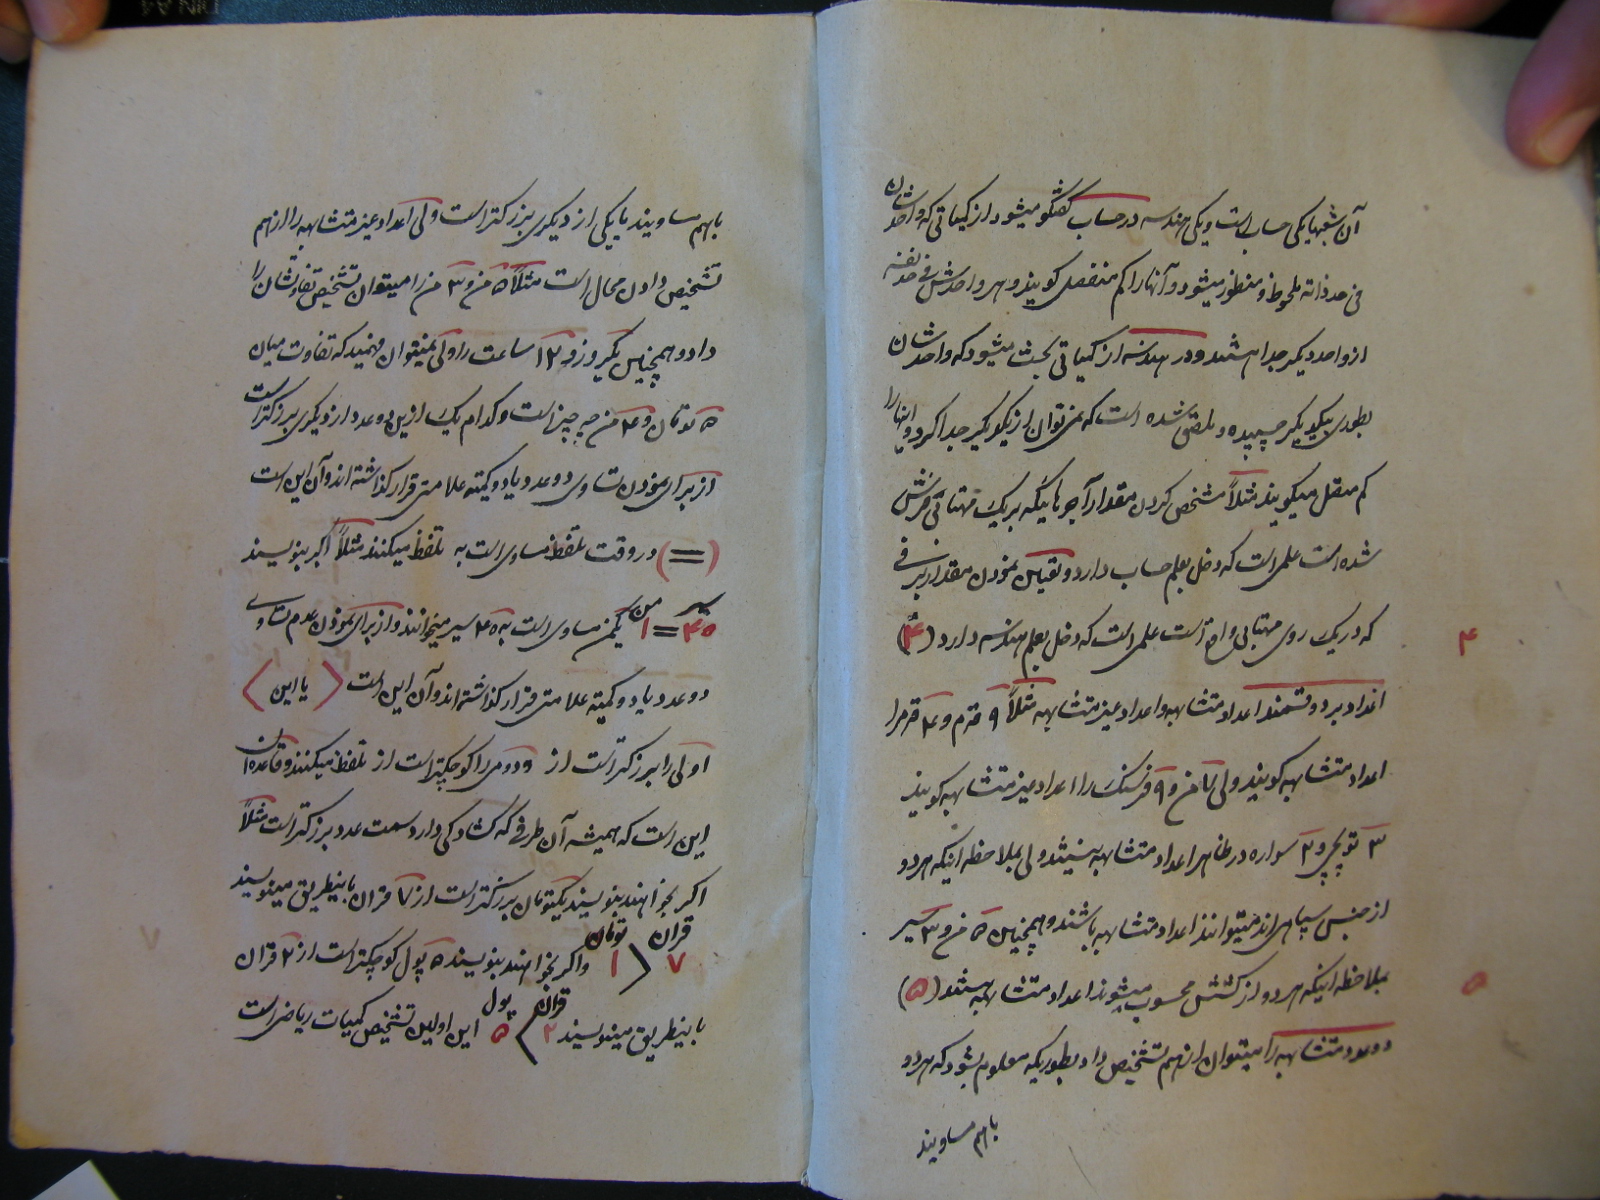 آن شعبها یکی حساب است و یکی هندسه در حساب گفتگو میشود از کمیاتی که واحدشان
فی حد ذاته ملحوظ و منظور میشود و آنها را کم منفصل گویند و هر واحدش فی حد نفسه
از واحد دیگر جدا هستند و در هندسه از کمیاتی بحث میشود که واحدشان
بطوری بیکدیگر چسپیده و ملصق شده است که نمی توان از یکدیگر جدا کرد و اینها را
کم متصل میگویند مثلاً مشخص کردن مقدار آجرهائیکه بر یک مهتابی فرش
شده است علمی است که دخل بعلم حساب دارد و تعیین نمودن مقدار برفی
که در یک روی مهتابی واقع است علمی است که دخل بعلم هندسه دارد (۴)
۴
اعداد بر دو قسمند اعداد متشابهه و اعداد غیر متشابهه مثلاً ۹ قدم و ۴ قدم را
اعداد متشابهه گویند ولی ۷ من و ۹ فرسنگ را اعداد غیر متشابهه گویند
۳ توپچی و ۲ سواره در ظاهر اعداد متشابهه نیستند ولی بملاحظه اینکه هر دو
از جنس سپاهی اند میتوانند اعداد متشابهه باشند و همچنین ۵ من و ۳ سیر
بملاحظه اینکه هر دو از کشش محسوب میشوند اعداد متشابهه هستند (۵)
۵
دو عدد متشابهه را میتوان از هم تشخیص داد بطوریکه معلوم بشود که هر دو
باهم مساویند
باهم مساویند یا یکی از دیگری بزرگتر است ولی اعداد غیر متشابهه را از هم
تشخیص دادن محال است مثلاً ۵ من و ۳ من را میتوان تشخیص تفاوتشان را
داد و همچنین یکروز و ۱۲ ساعت را ولی نمیتوان فهمید که تفاوت میان
۵ تومان و ۴ من چه چیز است و کدام یک از این دو عدد از دیگری بزرگتر است
از برای نمودن تساوی دو عدد یا دو کمیته علامتی قرار گذاشته اند و آن این است
(=) در وقت تلفظ مساوی است به تلفظ میکنند مثلاً اگر بنویسند
سیر ۴۰ = ۱ من یکمن مساوی است به ۴۰ سیر میخوانند و از برای نمودن عدم تساوی
دو عدد یا دو کمیته علامتی قرار گذاشته اند و آن این است > یا این <
اولی را بزرگتر است از و دومی را کوچکتر است از تلفظ میکنند و قاعده آن
این است که همیشه آن طرفی که گشادگی دارد سمت عدد بزرگتر است مثلاً
اگر بخواهند بنویسند یکتومان بزرگتر است از ۷ قران باینطریق مینویسند
قران ۷ > تومان ۱ و اگر بخواهند بنویسند ۵ پول کوچکتر است از ۲ قران
باینطریق مینویسند قران ۲ < پول ۵ این اولین تشخیص کمیات ریاضی است